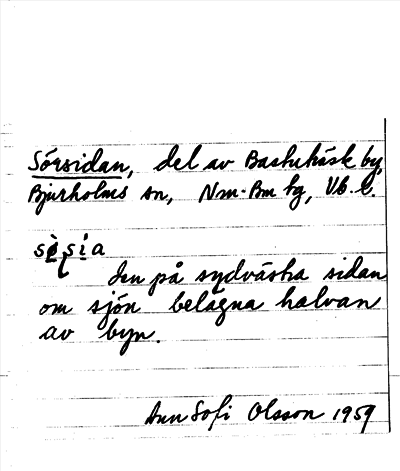 Sörsidan, del av Bastuträsk by,
Bjurholms sn, Nm-Bm tg, Vb. l.
sö̀si̇a
den på sydvästra sidan
om sjön belägna halvan
av byn.
Ann Sofi Olsson 1959